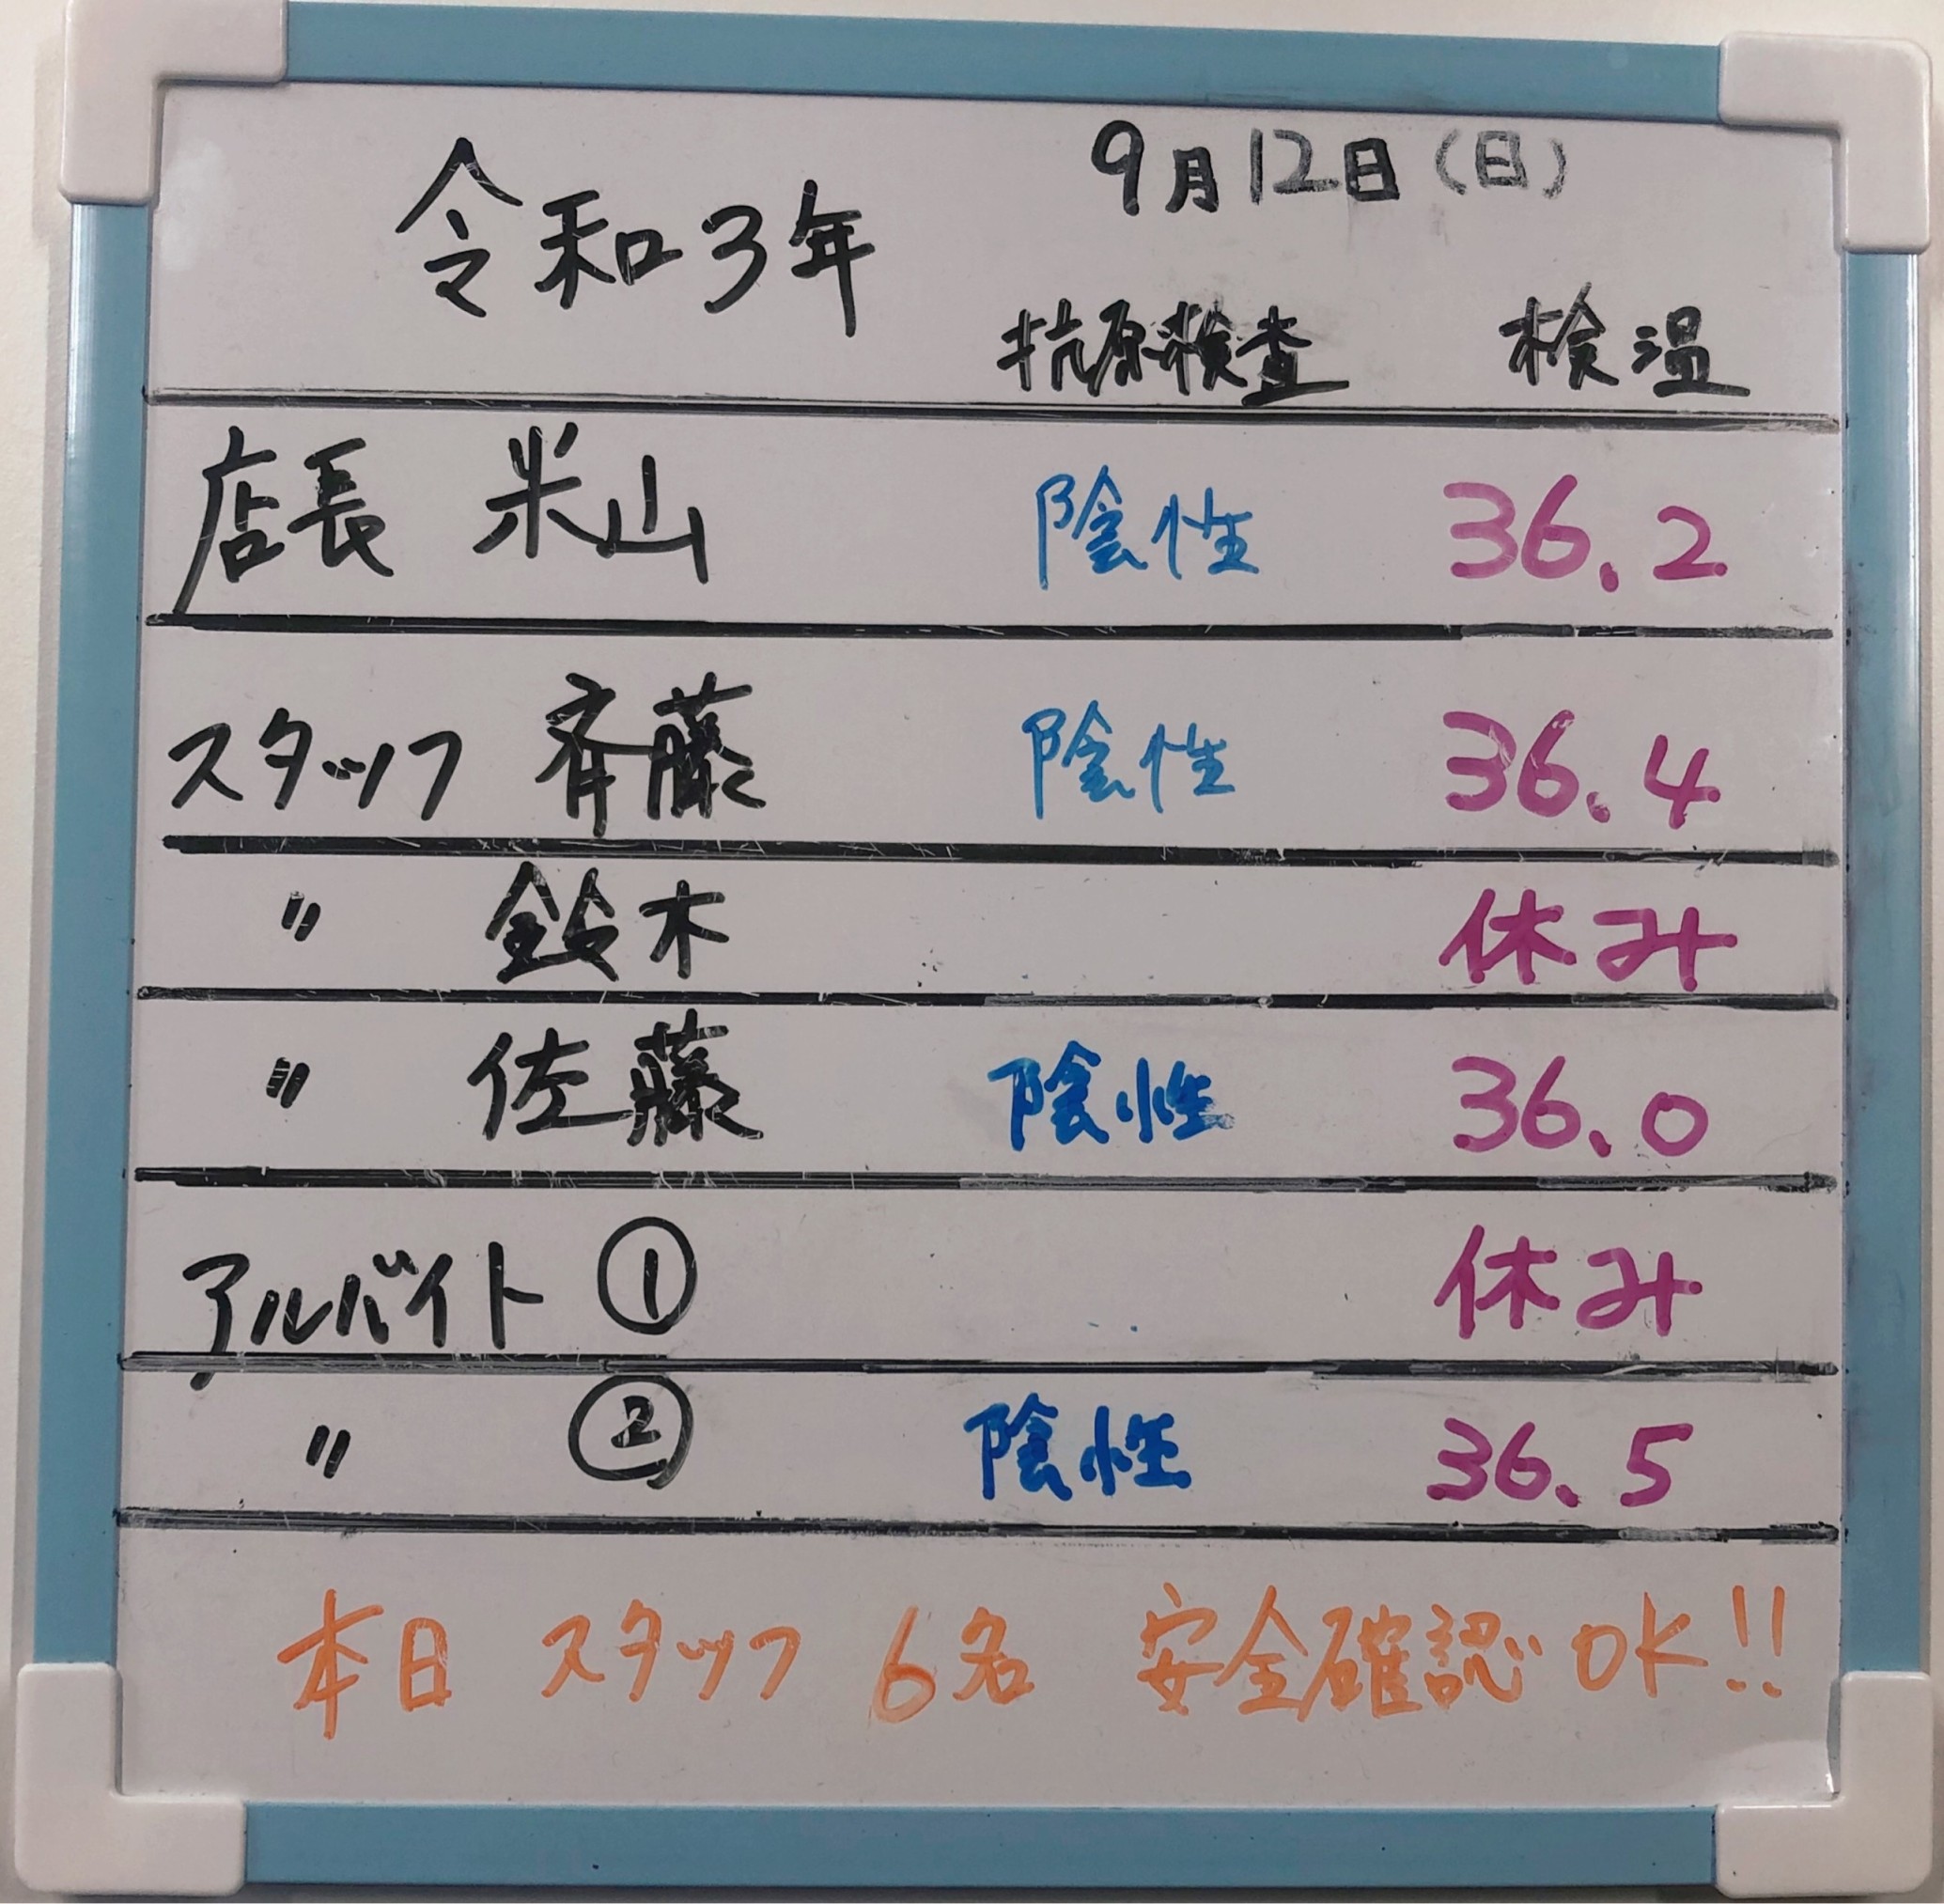 令和3年 9月12日(日)
抗原検査 検温
店長 米山 陰性 36.2
スタッフ 斉藤 陰性 36.4
〃 鈴木 休み
〃 佐藤 陰性 36.0
アルバイト ① 休み
〃 ② 陰性 36.5
本日 スタッフ 6名 安全確認OK!!